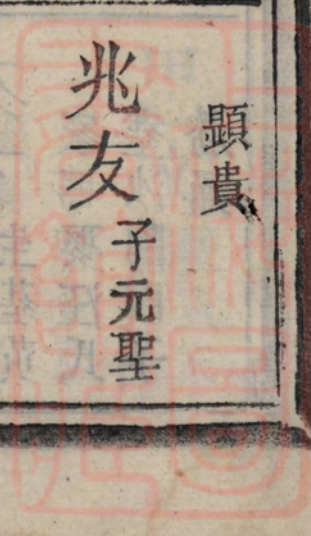 顕貴
兆友子元聖